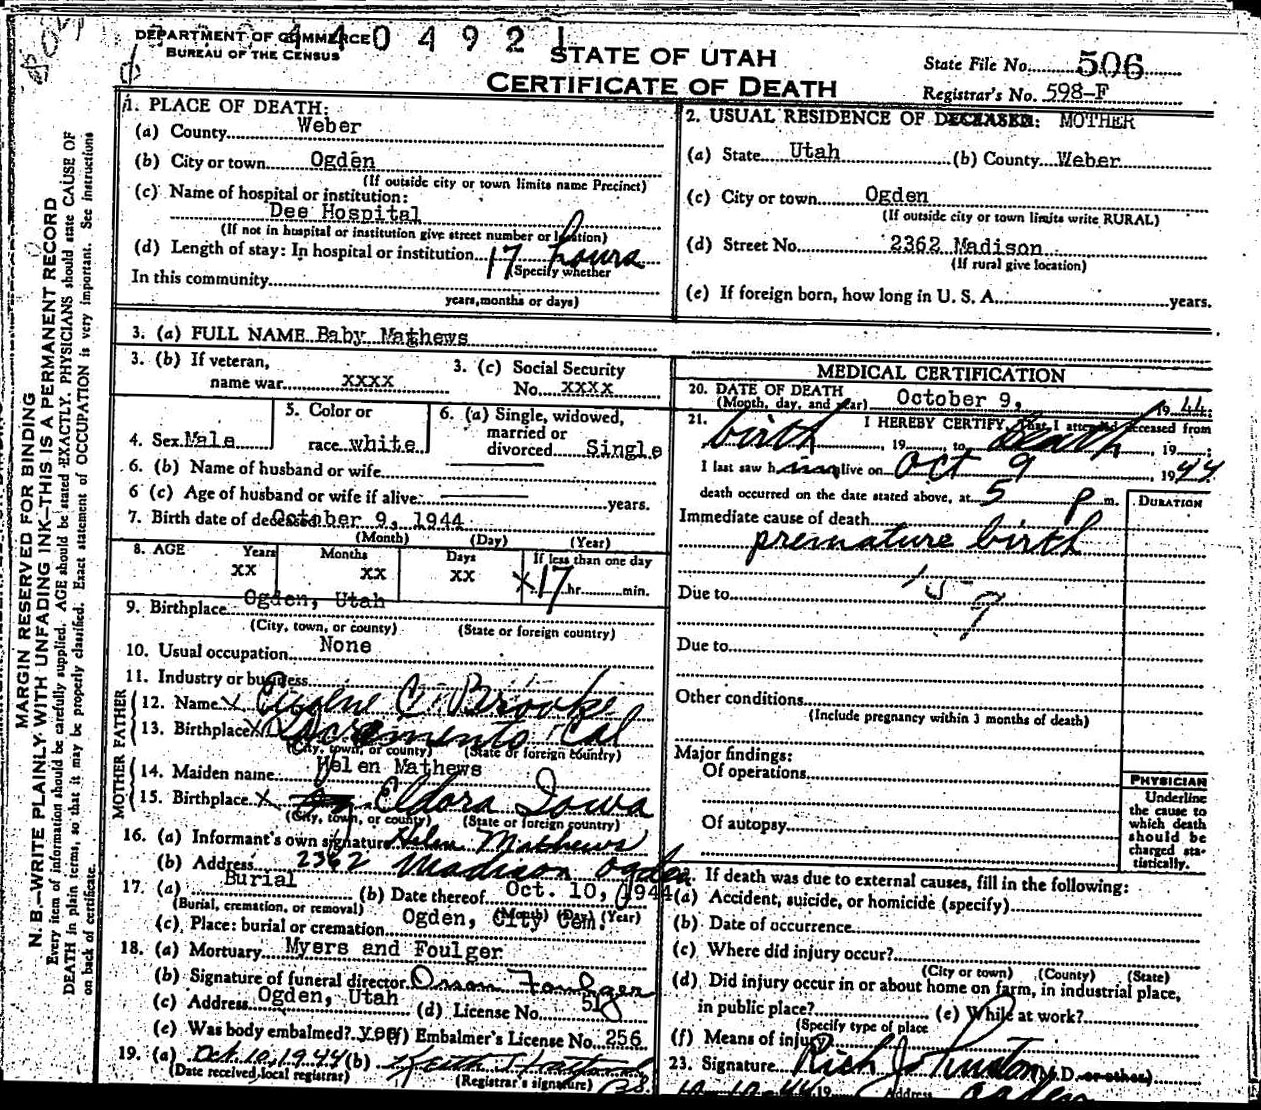 DEPARTMENT OF COMMERCE
BUREAU OF THE CENSUS
4 4 0 4 9 2 1
STATE OF UTAH
CERTIFICATE OF DEATH
State File No. 506
Registrar's No. 598-F
MARGIN RESERVED FOR BINDING
N. B.—WRITE PLAINLY WITH UNFADING INK—THIS IS A PERMANENT RECORD
Every item of information should be carefully supplied. AGE should be stated EXACTLY. PHYSICIANS should state CAUSE OF
DEATH in plain terms, so that it may be properly classified. Exact statement of OCCUPATION is very important. See instructions
on back of certificate.
1. PLACE OF DEATH:
(a) County Weber
(b) City or town Ogden
(If outside city or town limits name Precinct)
(c) Name of hospital or institution:
Dee Hospital
(If not in hospital or institution give street number or location)
(d) Length of stay: In hospital or institution 17 hours
(Specify whether
In this community
years, months or days)
2. USUAL RESIDENCE OF DECEASED: MOTHER
(a) State Utah (b) County Weber
(c) City or town Ogden
(If outside city or town limits write RURAL)
(d) Street No. 2362 Madison
(If rural give location)
(e) If foreign born, how long in U. S. A. years.
3. (a) FULL NAME Baby Mathews
3. (b) If veteran, name war xxxx
3. (c) Social Security No. xxxx
4. Sex Male
5. Color or race white
6. (a) Single, widowed, married or divorced Single
6. (b) Name of husband or wife
6 (c) Age of husband or wife if alive years.
7. Birth date of deceased October 9, 1944
(Month) (Day) (Year)
8. AGE Years Months Days If less than one day
xx xx xx x 17 hr. min.
9. Birthplace Ogden, Utah
(City, town, or county) (State or foreign country)
10. Usual occupation None
11. Industry or business
FATHER
12. Name x Eugene C. Brooke
13. Birthplace x Sacramento Cal
(City, town, or county) (State or foreign country)
MOTHER
14. Maiden name Helen Mathews
15. Birthplace x Eldora Iowa
(City, town, or county) (State or foreign country)
16. (a) Informant's own signature Helen Mathews
(b) Address 2362 Madison Ogden
17. (a) Burial (b) Date thereof Oct. 10, 1944
(Burial, cremation, or removal) (Month) (Day) (Year)
(c) Place: burial or cremation Ogden, City Cem.
18. (a) Mortuary Myers and Foulger
(b) Signature of funeral director Orson Foulger
(c) Address Ogden, Utah (d) License No. 518
(e) Was body embalmed? yes (f) Embalmer's License No. 256
19. (a) Oct. 10, 1944 (b) Keith
(Date received local registrar) (Registrar's signature)
MEDICAL CERTIFICATION
20. DATE OF DEATH
(Month, day, and year) October 9, 1944:
21. I HEREBY CERTIFY, That I attended deceased from
birth, 19 to Death, 19 ;
I last saw h im alive on Oct 9, 1944
death occurred on the date stated above, at 5 P m.
DURATION
Immediate cause of death
premature birth
159
Due to
Due to
Other conditions
(Include pregnancy within 3 months of death)
Major findings:
Of operations
Of autopsy
PHYSICIAN
Underline
the cause to
which death
should be
charged sta-
tistically.
If death was due to external causes, fill in the following:
(a) Accident, suicide, or homicide (specify)
(b) Date of occurrence
(c) Where did injury occur?
(City or town) (County) (State)
(d) Did injury occur in or about home on farm, in industrial place,
in public place? (e) While at work?
(Specify type of place
(f) Means of injury
23. Signature Rich Johnston (M.D. or other)
10-10-44 19 Address Ogden